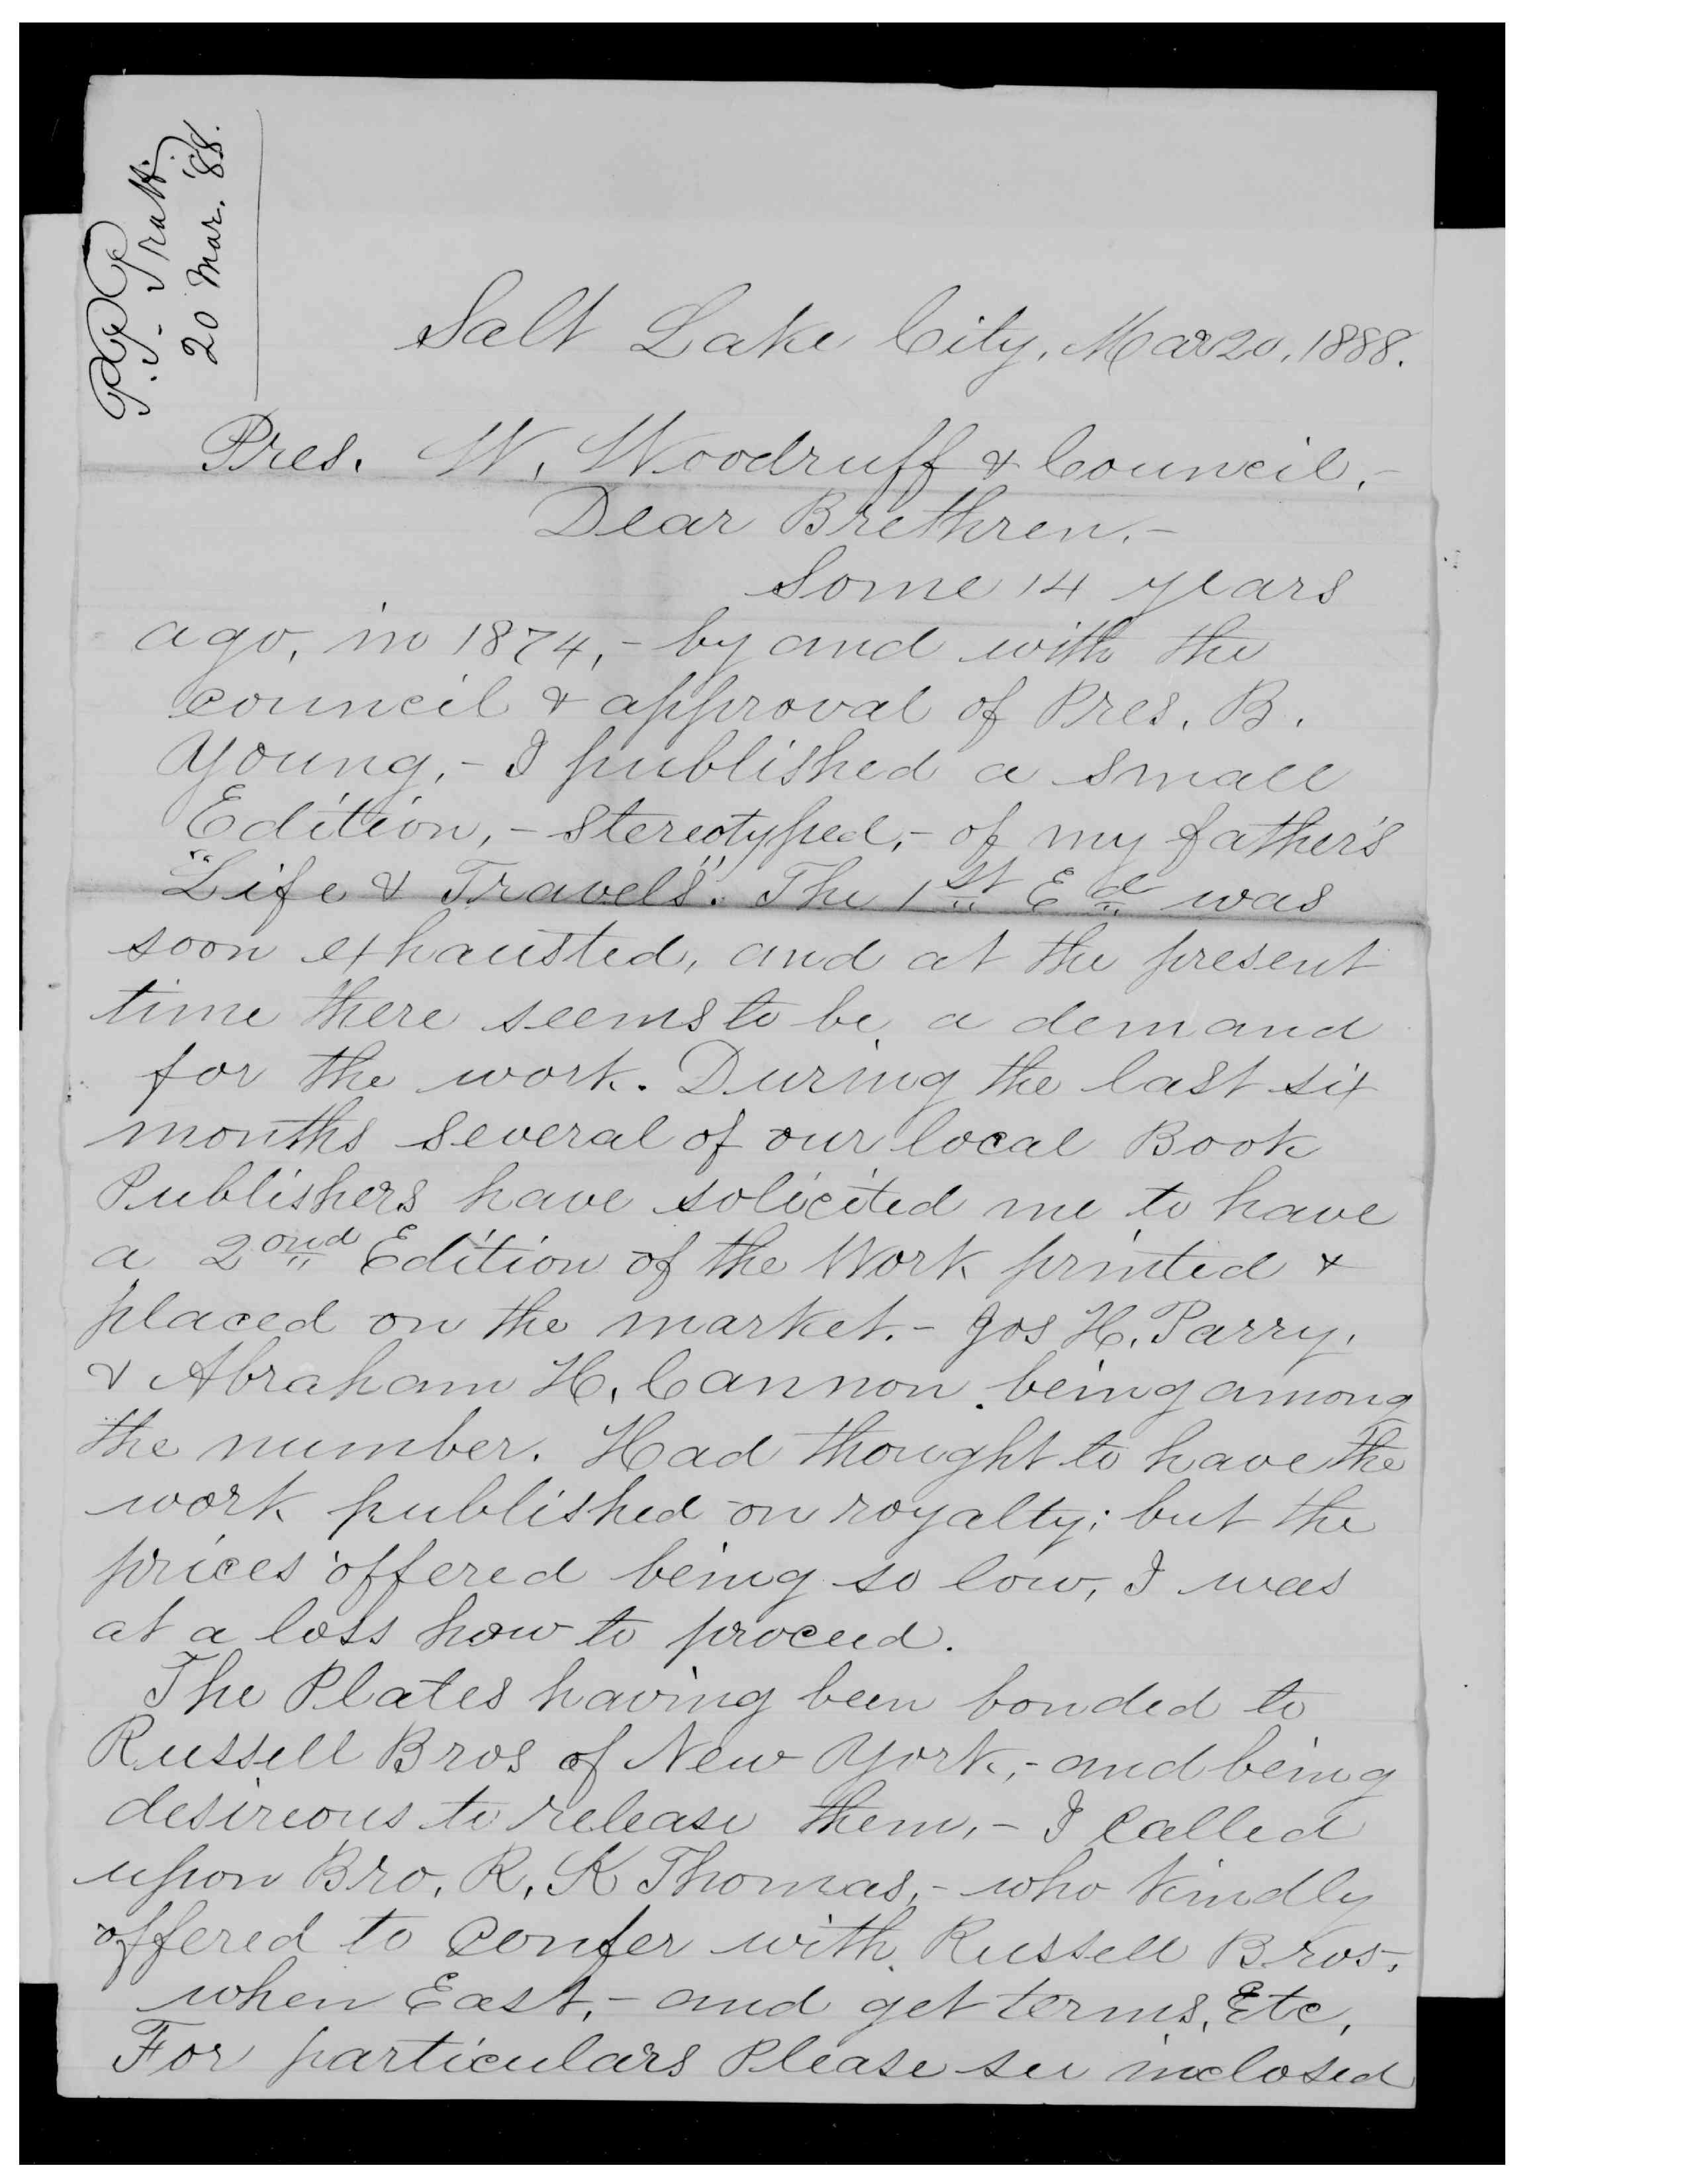 P. P. Pratt
20 Mar. '88.
Salt Lake City, Mar 20, 1888.
Pres. W. Woodruff & Council,-
Dear Brethren,-
Some 14 years
ago, in 1874,- by and with the
council & approval of Pres. B.
Young,- I published a small
Edition,- stereotyped,- of my father's
"Life & Travels". The 1st Ed was
soon exhausted, and at the present
time there seems to be a demand
for the work. During the last six
months several of our local Book
Publishers have solicited me to have
a 2ond Edition of the Work printed &
placed on the market.- Jos H. Parry,
& Abraham H. Cannon being among
the number. Had thought to have the
work published on royalty; but the
prices offered being so low, I was
at a loss how to proceed.
The Plates having been bonded to
Russell Bros of New York,- and being
desireous to release them,- I called
upon Bro. R. K Thomas,- who kindly
offered to confer with Russell Bros.
when East,- and get terms, Etc,
For particulars Please see inclosed